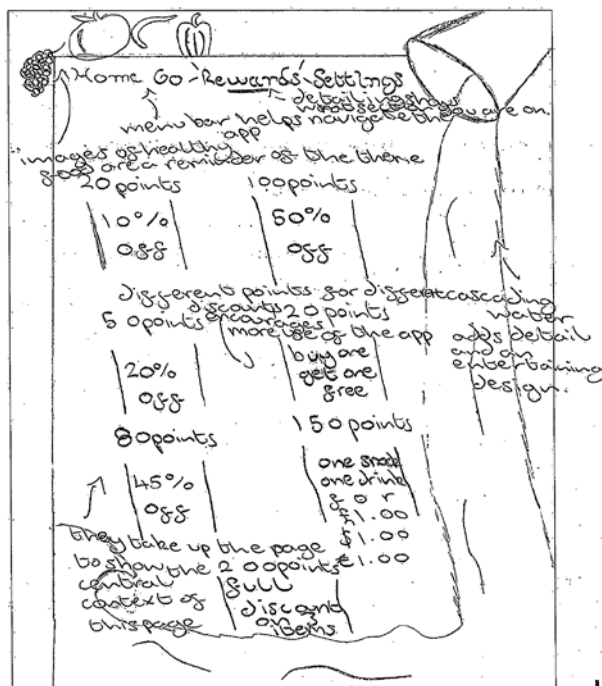 Home Go - Rewards - Settings
detailing shows
what setting you are on.
menu bar helps navigate the
app
images of healthy
food are a reminder of the theme
20 points 100 points
10% 50%
off off
different points for different
discounts
encourages
more use of the app
cascading
water
adds detail
and an
entertaining
design.
50 points 120 points
20% buy one
off get one
free
80 points 150 points
45% one snack
off one drink
for
£1.00
$1.00
€1.00
they take up the page
to show the
central
context of
this page
200 points
full
discount
on 3
items